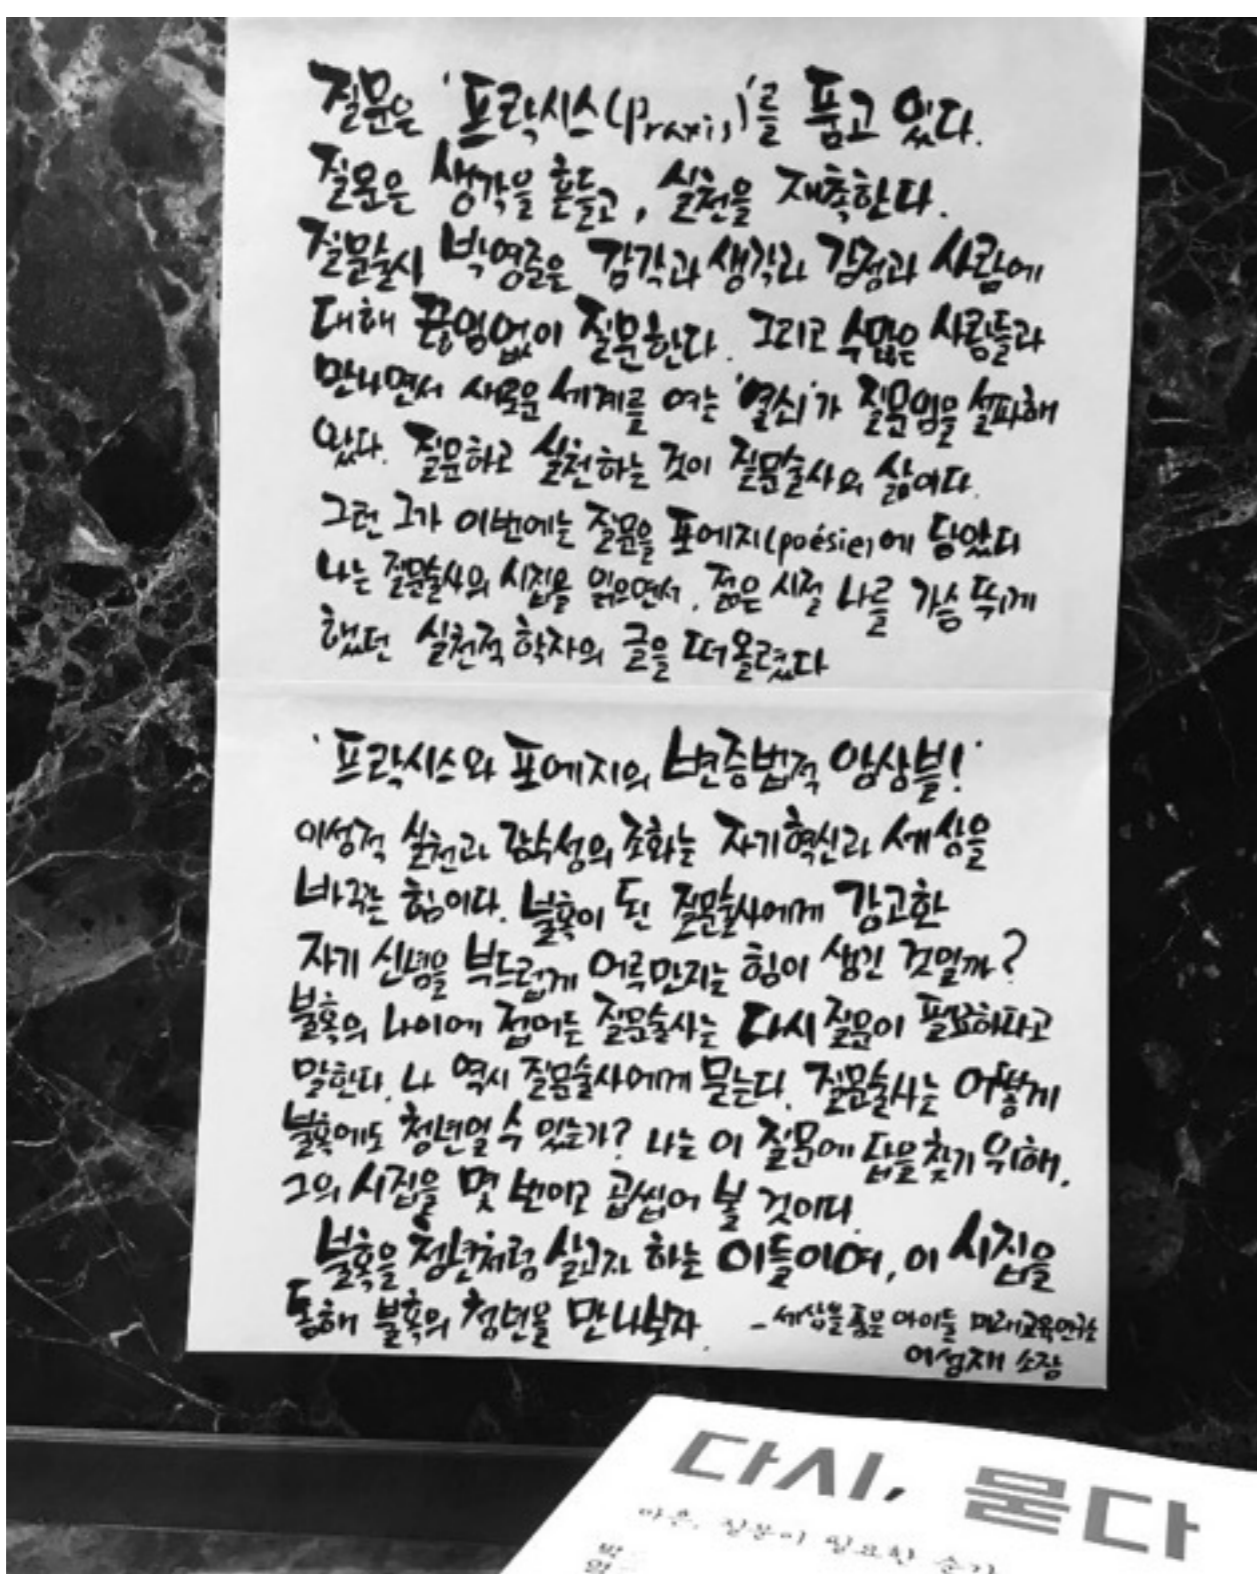 질문은 '프락시스(Praxis)'를 품고 있다.
질문은 생각을 흔들고, 실천을 재촉한다.
질문술사 박영준은 감각과 생각과 감정과 사람에
대해 끊임없이 질문한다. 그리고 수많은 사람들과
만나면서 새로운 세계를 여는 '열쇠'가 질문임을 설파해
왔다. 질문하고 실천하는 것이 질문술사의 삶이다.
그런 그가 이번에는 질문을 포에지(poésie)에 담았다
나는 질문술사의 시집을 읽으면서, 젊은 시절 나를 가슴 뛰게
했던 실천적 학자의 글을 떠올렸다
'프락시스와 포에지의 변증법적 앙상블!'
이성적 실천과 감수성의 조화는 자기혁신과 세상을
바꾸는 힘이다. 불혹이 된 질문술사에게 강고한
자기 신념을 부드럽게 어루만지는 힘이 생긴 것일까?
불혹의 나이에 접어든 질문술사는 다시 질문이 필요하다고
말한다. 나 역시 질문술사에게 묻는다. 질문술사는 어떻게
불혹에도 청년일 수 있는가? 나는 이 질문에 답을 찾기 위해,
그의 시집을 몇 번이고 곱씹어 볼 것이다.
불혹을 청년처럼 살고자 하는 이들이여, 이 시집을
통해 불혹의 청년을 만나보자.
- 세상을 품은 아이들 미래교육연구소
이성재 소장
다시, 묻다
마흔, 질문이 필요한 순간
박영